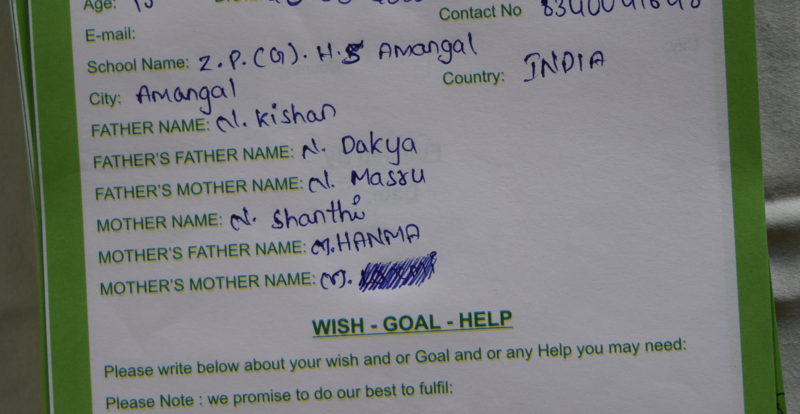 Age: 15
Contact No
E-mail:
School Name: Z.P.(G).H.S Amangal
City: Amangal Country: INDIA
FATHER NAME: N. Kishan
FATHER'S FATHER NAME: N. Dakya
FATHER'S MOTHER NAME: N. Massu
MOTHER NAME: N. Shanthi
MOTHER'S FATHER NAME: M. HANMA
MOTHER'S MOTHER NAME: M.
WISH - GOAL - HELP
Please write below about your wish and or Goal and or any Help you may need:
Please Note : we promise to do our best to fulfil: